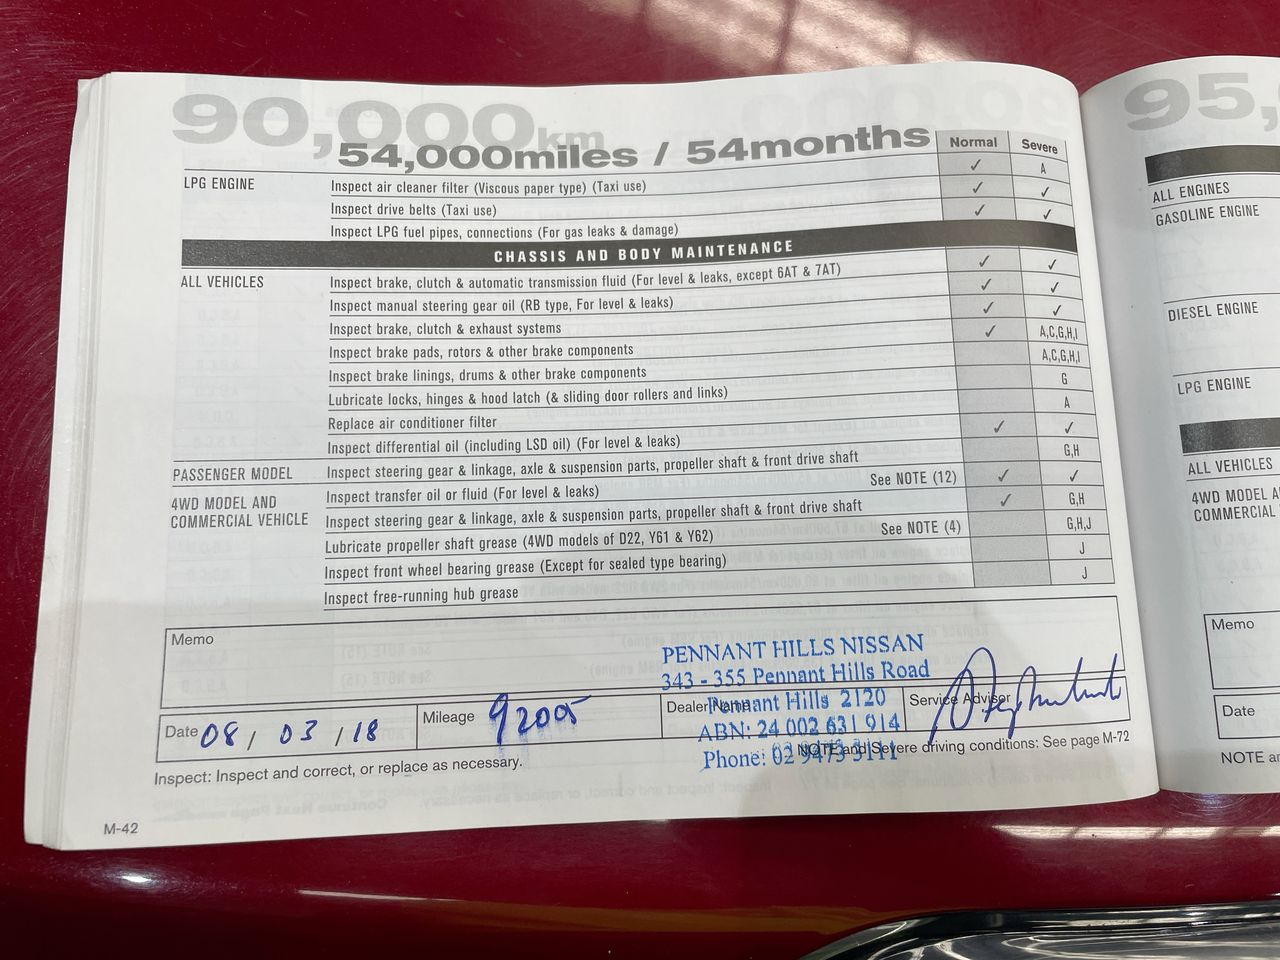 90,000km
54,000miles / 54months
Normal Severe
LPG ENGINE Inspect air cleaner filter (Viscous paper type) (Taxi use) ✓ A
Inspect drive belts (Taxi use) ✓ ✓
Inspect LPG fuel pipes, connections (For gas leaks & damage) ✓ ✓
CHASSIS AND BODY MAINTENANCE
ALL VEHICLES Inspect brake, clutch & automatic transmission fluid (For level & leaks, except 6AT & 7AT) ✓ ✓
Inspect manual steering gear oil (RB type, For level & leaks) ✓ ✓
Inspect brake, clutch & exhaust systems ✓ ✓
Inspect brake pads, rotors & other brake components ✓ A,C,G,H,I
Inspect brake linings, drums & other brake components A,C,G,H,I
Lubricate locks, hinges & hood latch (& sliding door rollers and links) G
Replace air conditioner filter A
Inspect differential oil (including LSD oil) (For level & leaks) ✓ ✓
PASSENGER MODEL Inspect steering gear & linkage, axle & suspension parts, propeller shaft & front drive shaft G,H
4WD MODEL AND COMMERCIAL VEHICLE Inspect transfer oil or fluid (For level & leaks) See NOTE (12) ✓ ✓
Inspect steering gear & linkage, axle & suspension parts, propeller shaft & front drive shaft ✓ G,H
Lubricate propeller shaft grease (4WD models of D22, Y61 & Y62) See NOTE (4) G,H,J
Inspect front wheel bearing grease (Except for sealed type bearing) J
Inspect free-running hub grease J
Memo
PENNANT HILLS NISSAN
343 - 355 Pennant Hills Road
Pennant Hills 2120
ABN: 24 002 631 914
Phone: 02 9473 3111
Date 08 / 03 / 18 Mileage 92005 Dealer Name Service Advisor
NOTE and Severe driving conditions: See page M-72
Inspect: Inspect and correct, or replace as necessary.
M-42
95,
ALL ENGINES
GASOLINE ENGINE
DIESEL ENGINE
LPG ENGINE
ALL VEHICLES
4WD MODEL A
COMMERCIAL
Memo
Date
NOTE an